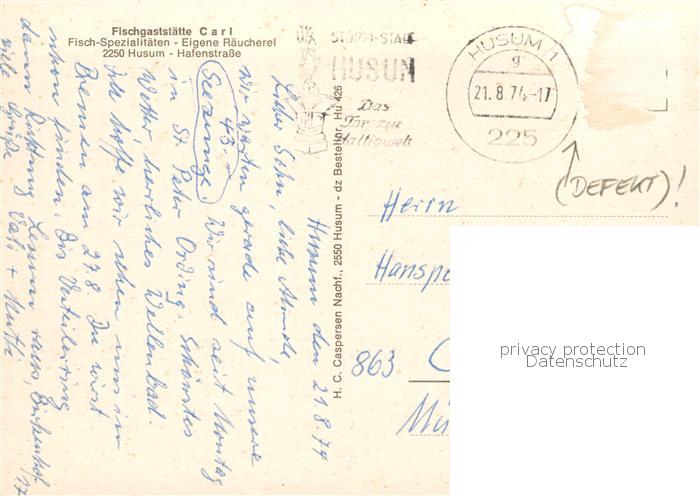 Fischgaststätte Carl
Fisch-Spezialitäten - Eigene Räucherei
2250 Husum - Hafenstraße
STORM-STADT
HUSUM
Das
Tor zur
Halligwelt
HUSUM 1
g
21.8.74-17
225
(DEFEKT)!
H. C. Caspersen Nachf., 2550 Husum - dz Bestellnr. Hu 426
Husum den 21.8.74
Lieber Sohn, liebe
wir warten gerade auf unsere
Seezunge. Wir sind seit Montag
45.-
in St. Peter Ording. Schönstes
Wetter, herrliches Wellenbad.
hoffe wir sehen uns in
Bremen am 27.8. Du wirst
schon finden. Bis Verteilerring
dann Richtung rechts,
viele Grüße Vati + Mutti
17
Herrn
Hanspe
863 C
Mü
privacy protection
Datenschutz